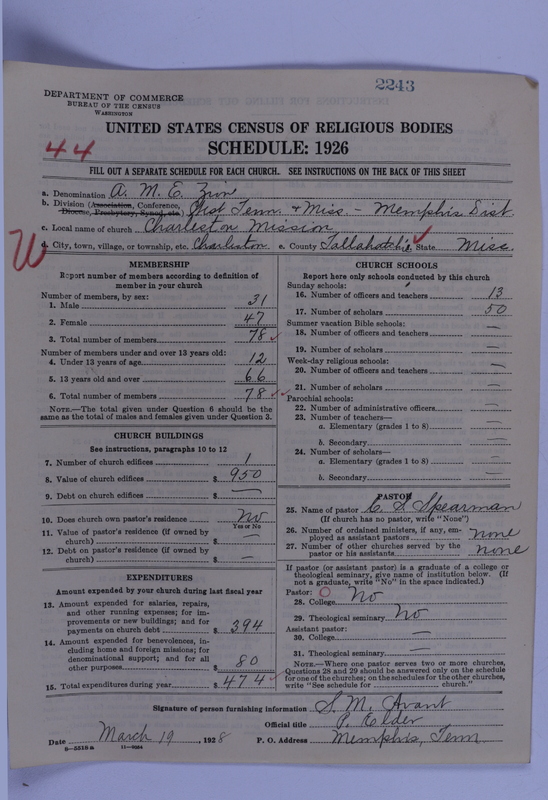 2243
DEPARTMENT OF COMMERCE
BUREAU OF THE CENSUS
WASHINGTON
UNITED STATES CENSUS OF RELIGIOUS BODIES
SCHEDULE: 1926
44
FILL OUT A SEPARATE SCHEDULE FOR EACH CHURCH. SEE INSTRUCTIONS ON THE BACK OF THIS SHEET
a. Denomination A. M. E. Zion
b. Division (Association, Conference, Diocese, Presbytery, Synod, etc.) West Tenn. & Miss. - Memphis Dist.
c. Local name of church Charleston Mission
d. City, town, village, or township, etc. Charleston e. County Tallahatchie State Miss.
W
MEMBERSHIP
Report number of members according to definition of
member in your church
Number of members, by sex:
1. Male 31
2. Female 47
3. Total number of members 78
Number of members under and over 13 years old:
4. Under 13 years of age 12
5. 13 years old and over 66
6. Total number of members 78
NOTE.—The total given under Question 6 should be the
same as the total of males and females given under Question 3.
CHURCH BUILDINGS
See instructions, paragraphs 10 to 12
7. Number of church edifices 1
8. Value of church edifices $ 950
9. Debt on church edifices $ —
10. Does church own pastor's residence No
Yes or No
11. Value of pastor's residence (if owned by
church) $ —
12. Debt on pastor's residence (if owned by
church) $ —
EXPENDITURES
Amount expended by your church during last fiscal year
13. Amount expended for salaries, repairs,
and other running expenses; for im-
provements or new buildings; and for
payments on church debt $ 394
14. Amount expended for benevolences, in-
cluding home and foreign missions; for
denominational support; and for all
other purposes $ 80
15. Total expenditures during year $ 474
CHURCH SCHOOLS
Report here only schools conducted by this church
Sunday schools:
16. Number of officers and teachers 13
17. Number of scholars 50
Summer vacation Bible schools:
18. Number of officers and teachers —
19. Number of scholars —
Week-day religious schools:
20. Number of officers and teachers —
21. Number of scholars —
Parochial schools:
22. Number of administrative officers —
23. Number of teachers—
a. Elementary (grades 1 to 8) —
b. Secondary —
24. Number of scholars—
a. Elementary (grades 1 to 8) —
b. Secondary —
PASTOR
25. Name of pastor C. S. Spearman
(If church has no pastor, write "None")
26. Number of ordained ministers, if any, em-
ployed as assistant pastors none
27. Number of other churches served by the
pastor or his assistants none
If pastor (or assistant pastor) is a graduate of a college or
theological seminary, give name of institution below. (If
not a graduate, write "No" in the space indicated.)
Pastor:
28. College No
29. Theological seminary No
Assistant pastor:
30. College —
31. Theological seminary —
NOTE.—Where one pastor serves two or more churches,
Questions 28 and 29 should be answered only on the schedule
for one of the churches; on the schedules for the other churches,
write "See schedule for church."
Signature of person furnishing information S. M. Avant
Official title P. Elder
Date March 19, 1928 P. O. Address Memphis, Tenn.